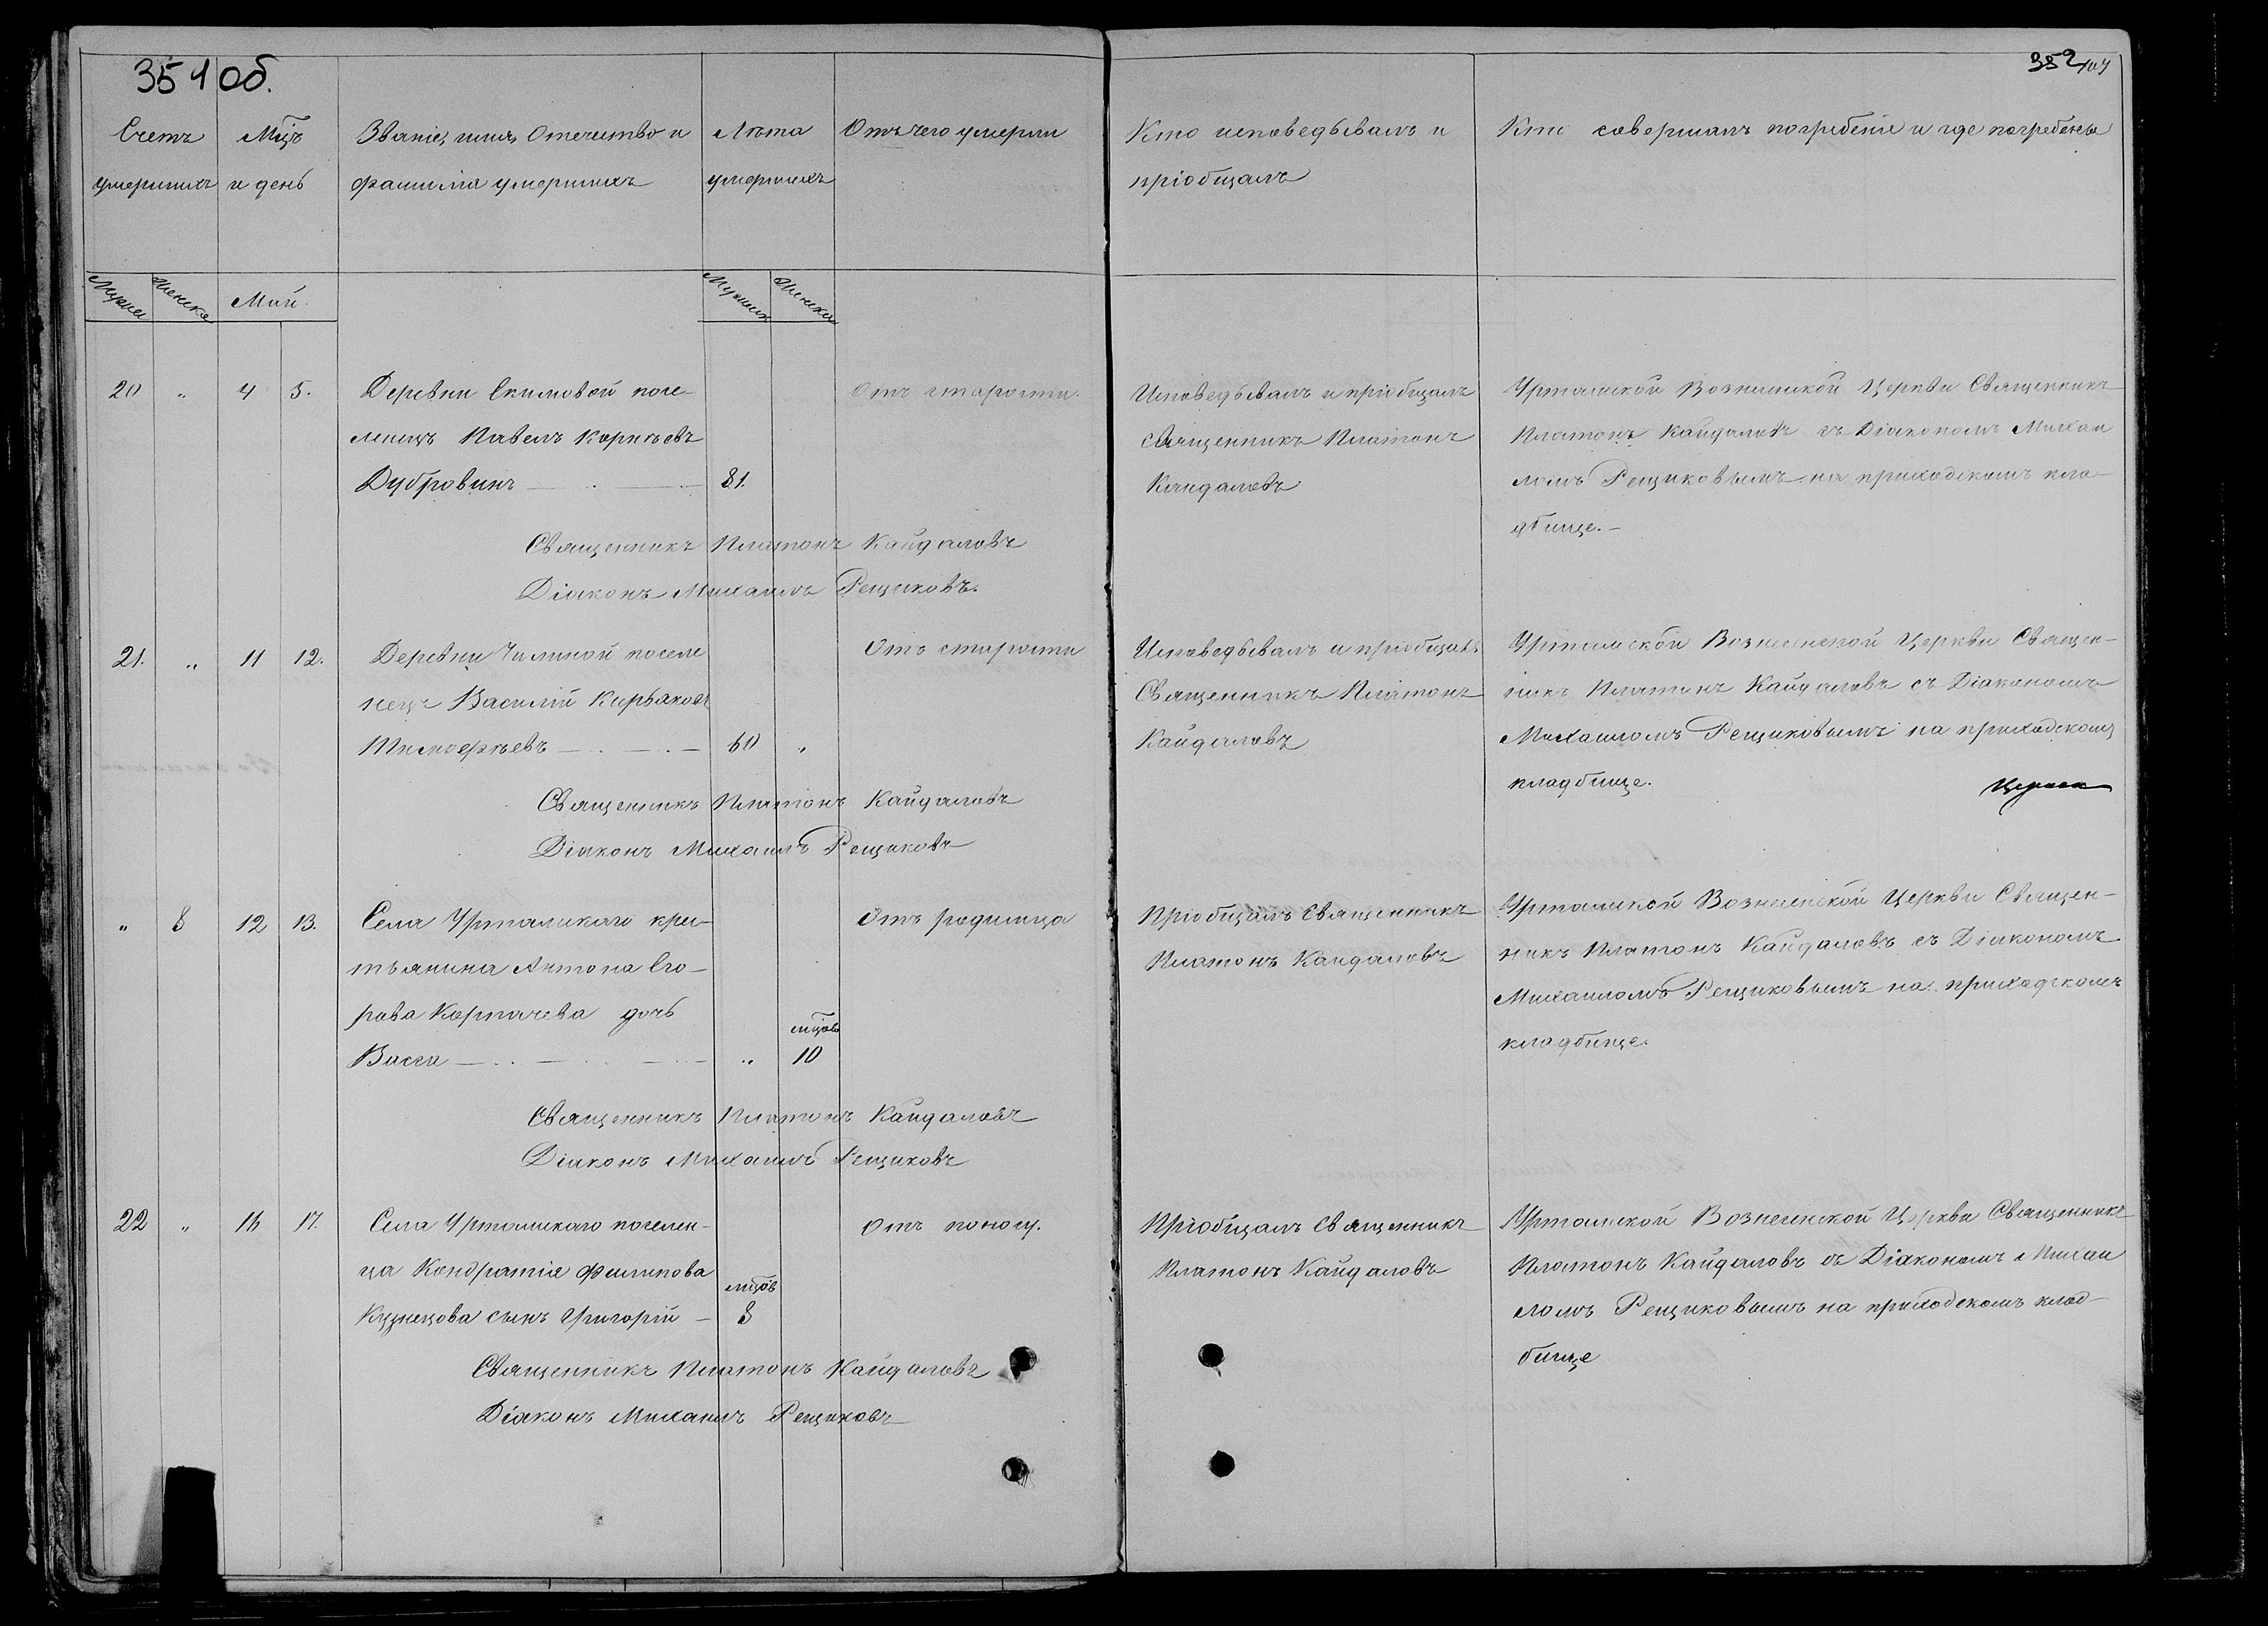 351 об.
352
Счетъ умершихъ
Мцъ и день
Званіе, имя, Отечество и
фамилія умершихъ
Лѣта умершихъ
Отъ чего умерли
Кто исповедывалъ и
пріобщалъ
Кто совершалъ погребеніе и где погребены
Май
20 „ 4 5.
Деревни Екимовой посе-
ленецъ Павелъ Корнѣевъ
Дубровинъ 81.
Отъ старости.
Исповедывалъ и пріобщалъ
священникъ Платонъ
Кайдаловъ
Уртамской Вознесенской Церкви Священникъ
Платонъ Кайдаловъ съ Діакономъ Михаи
ломъ Рещиковымъ на приходскомъ кла-
дбище.-
Священникъ Платонъ Кайдаловъ
Діаконъ Михаилъ Рещиковъ.
21. „ 11 12.
Деревни Чилиной поселе
нецъ Василій Кирьяковъ
Тимоѳеевъ 60 „
Отъ старости
Исповедывалъ и пріобщалъ
Священникъ Платонъ
Кайдаловъ
Уртамской Вознесенской Церкви Священ-
никъ Платонъ Кайдаловъ съ Діакономъ
Михаиломъ Рещиковымъ на приходскомъ
кладбище.
Священникъ Платонъ Кайдаловъ
Діаконъ Михаилъ Рещиковъ
„ 8 12 13.
Села Уртамскаго крес-
тьянина Антона Его-
рова Кормачева дочь
Васса „ мцовъ 10
Отъ родимца
Пріобщалъ Священникъ
Платонъ Кайдаловъ
Уртамской Вознесенской Церкви Священ-
никъ Платонъ Кайдаловъ съ Діакономъ
Михаиломъ Рещиковымъ на приходскомъ
кладбище.
Священникъ Платонъ Кайдаловъ
Діаконъ Михаилъ Рещиковъ
22 „ 16 17.
Села Уртамскаго поселен-
ца Кондратія Филипова
Кузнецова сынъ Григорій - мцовъ 8
Отъ поносу.
Пріобщалъ Священникъ
Платонъ Кайдаловъ
Уртамской Вознесенской Церкви Священникъ
Платонъ Кайдаловъ съ Діакономъ Михаи
ломъ Рещиковымъ на приходскомъ клад-
бище
Священникъ Платонъ Кайдаловъ
Діаконъ Михаилъ Рещиковъ